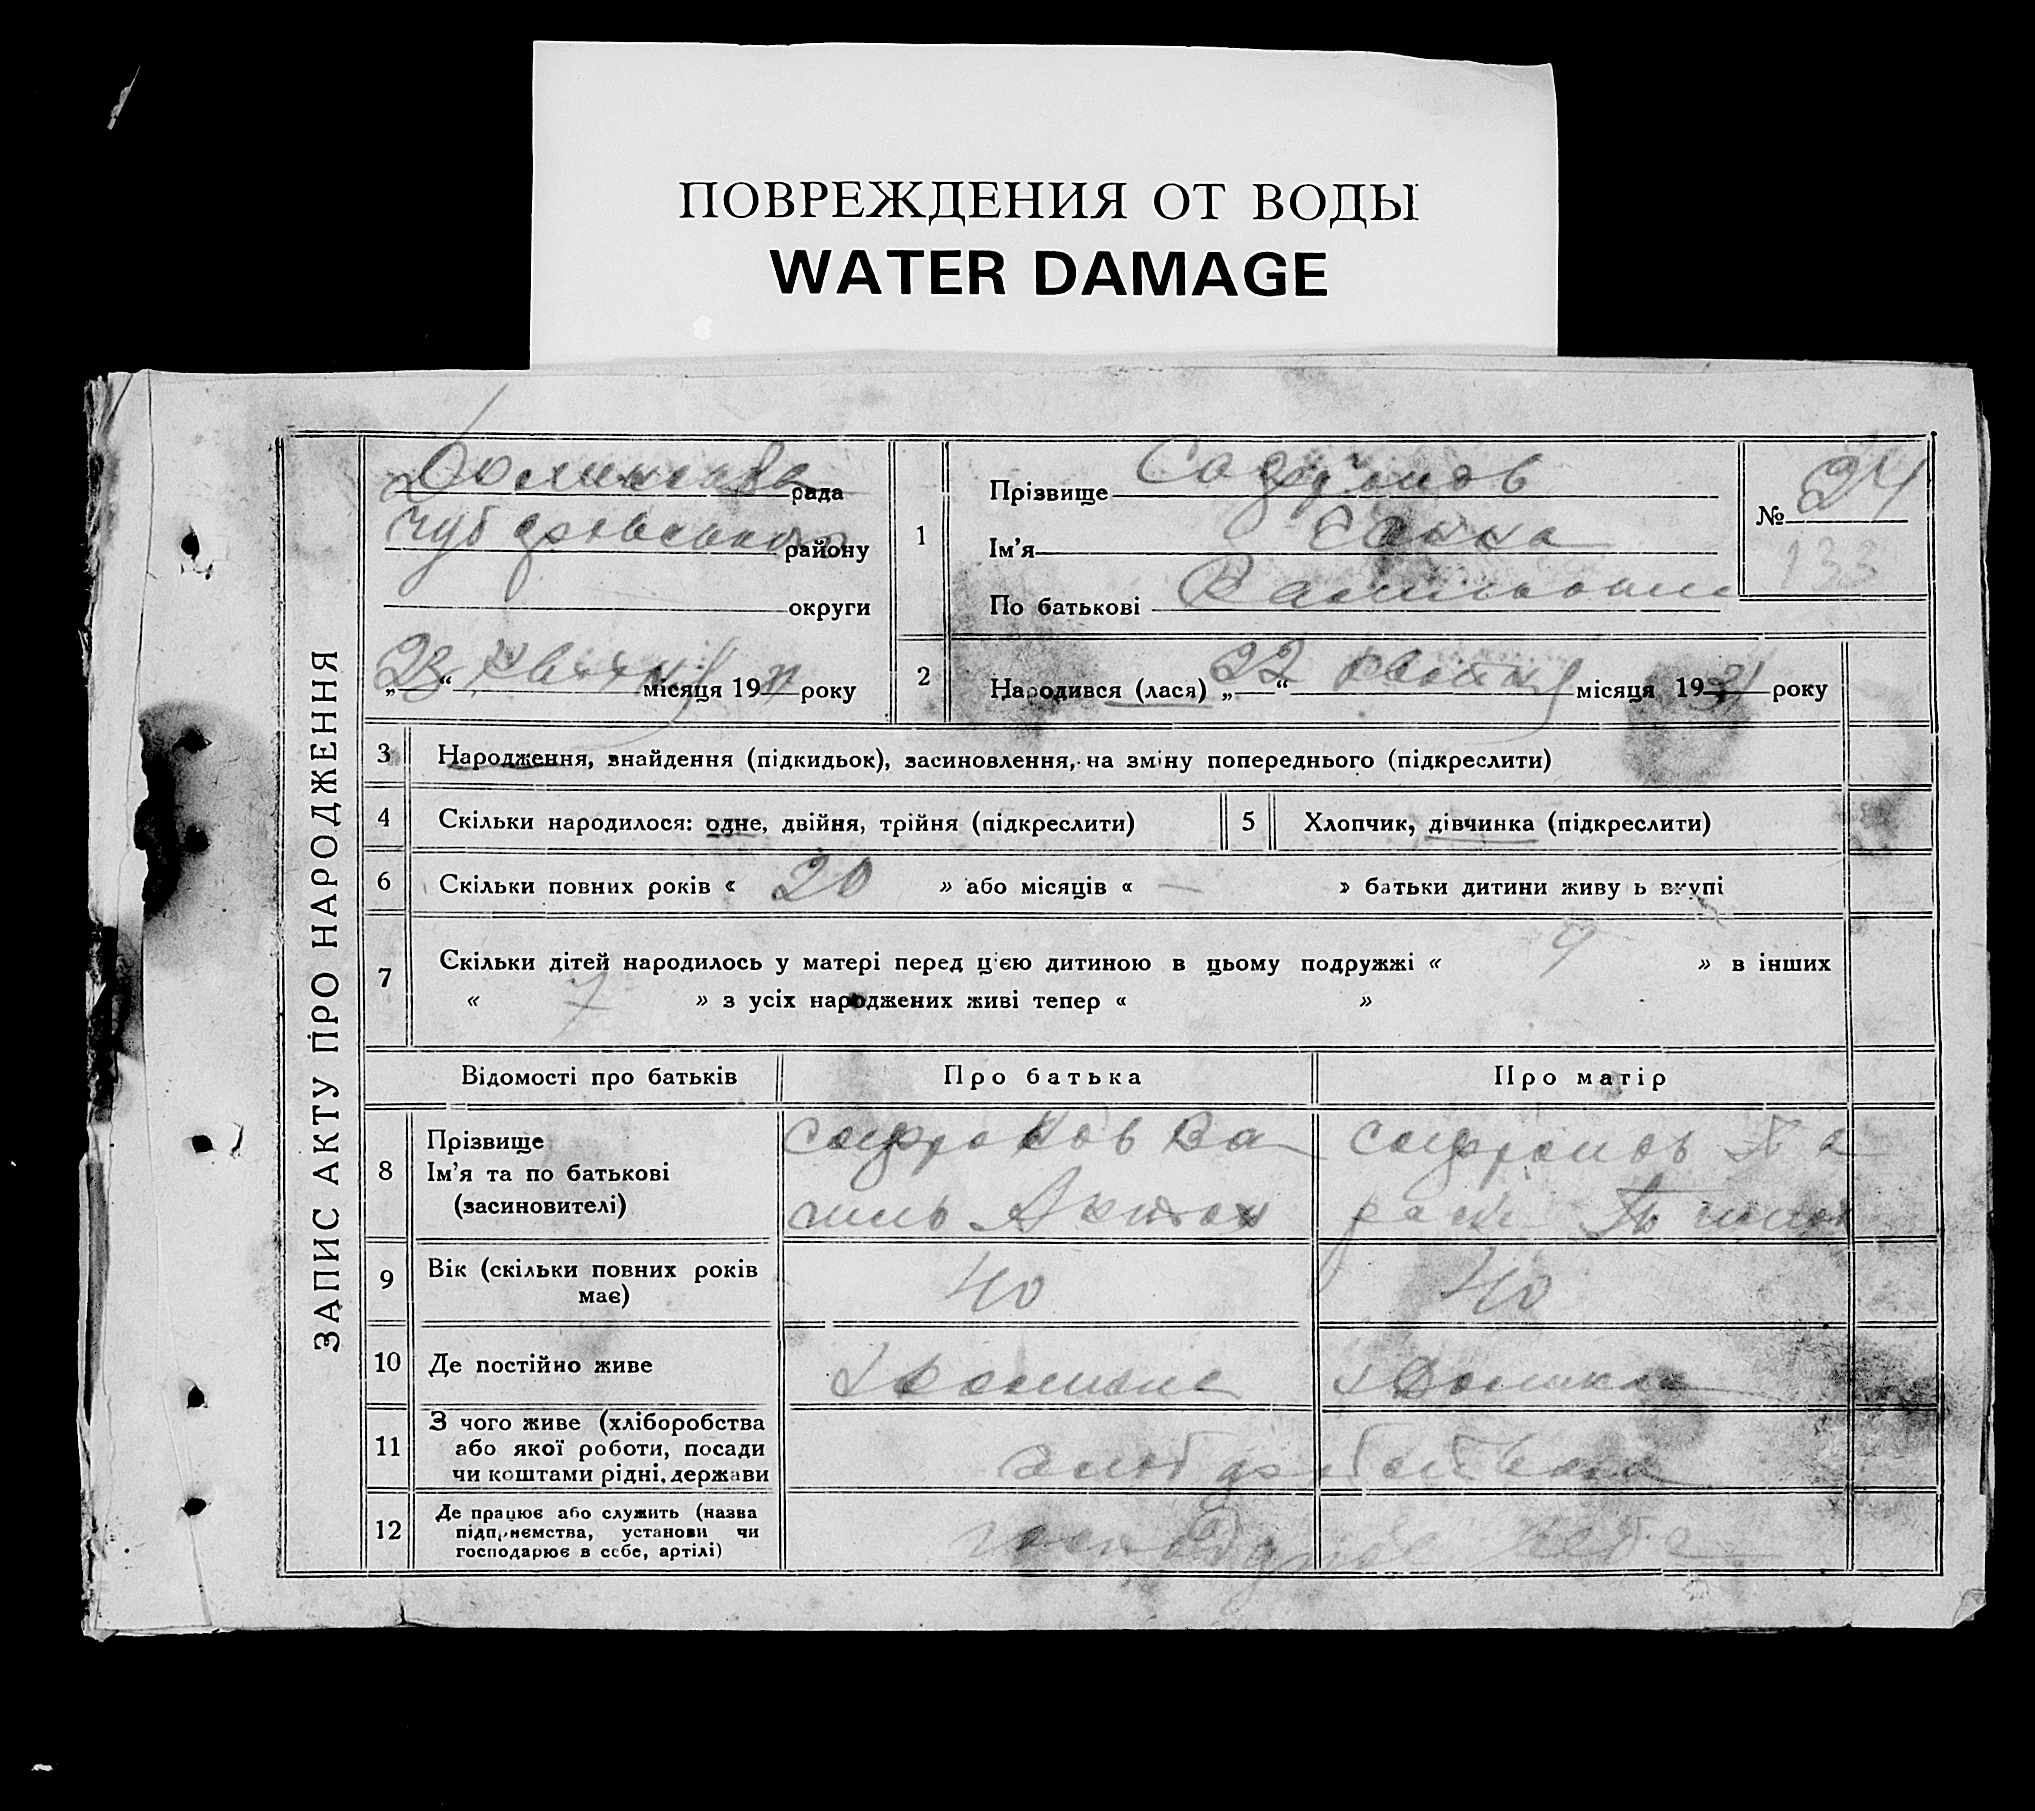 ПОВРЕЖДЕНИЯ ОТ ВОДЫ
WATER DAMAGE
ЗАПИС АКТУ ПРО НАРОДЖЕННЯ
рада
району
округи
„23“ квітня місяця 1931 року
1
Прізвище
Ім’я Ганна
По батькові
№ 24
133
2
Народився (лася) „22“ квітня місяця 1931 року
3 Народження, знайдення (підкидьок), засиновлення, на зміну попереднього (підкреслити)
4 Скільки народилося: одне, двійня, трійня (підкреслити)
5 Хлопчик, дівчинка (підкреслити)
6 Скільки повних років « 20 » або місяців « — » батьки дитини живу ь вкупі
7 Скільки дітей народилось у матері перед цією дитиною в цьому подружжі « 9 » в інших
« 7 » з усіх народжених живі тепер « »
Відомості про батьків Про батька Про матір
8 Прізвище
Ім’я та по батькові
(засиновителі)
Софронов Ва
силь Антон
Софронов Па
раска
9 Вік (скільки повних років
має)
40 40
10 Де постійно живе
11 З чого живе (хліборобства
або якої роботи, посади
чи коштами рідні, держави
хліборобства
12 Де працює або служить (назва
підприємства, установи чи
господарює в себе, артілі)
господарює в себе